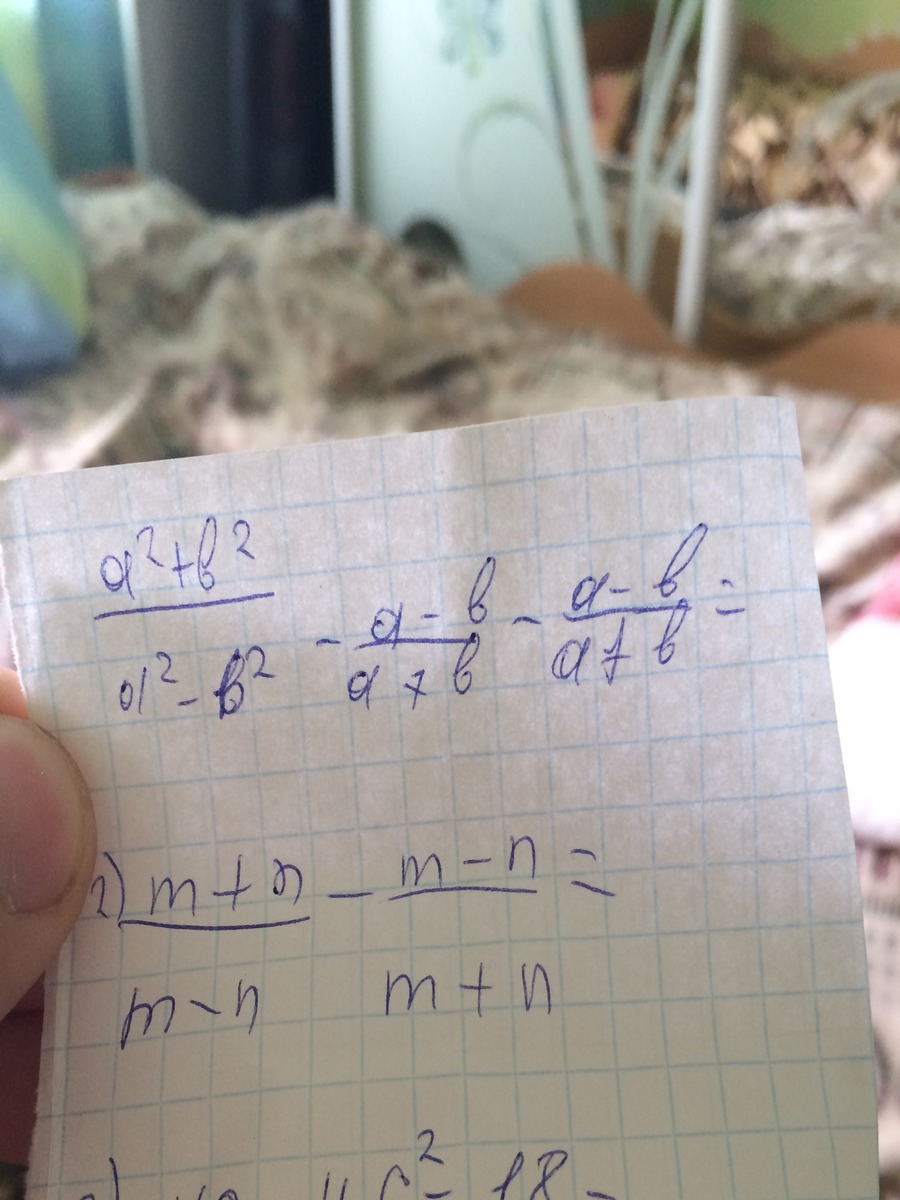 a²+b²/a²-b² - a-b/a+b - a-b/a+b =
2) m+n/m-n - m-n/m+n =
4c²-18=